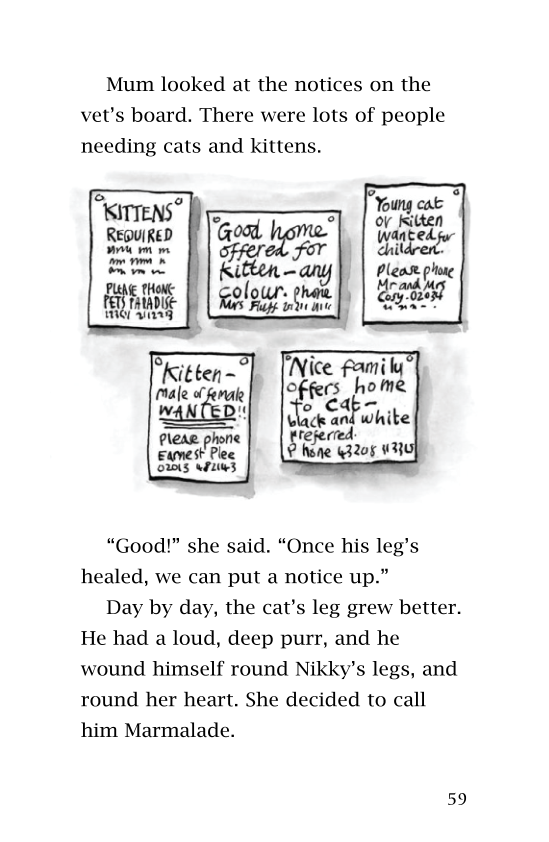 Mum looked at the notices on the
vet’s board. There were lots of people
needing cats and kittens.
KITTENS
REQUIRED
PLEASE PHONE
PETS PARADISE
Good home
offered for
kitten – any
colour. phone
Mrs Fluff
Young cat
or kitten
wanted for
children.
Please phone
Mr and Mrs
Cosy. 02034
Kitten –
male or female
WANTED!!
Please phone
Earnest Plee
02013 482143
Nice family
offers home
to cat –
black and white
preferred.
Phone 43208
“Good!” she said. “Once his leg’s
healed, we can put a notice up.”
Day by day, the cat’s leg grew better.
He had a loud, deep purr, and he
wound himself round Nikky’s legs, and
round her heart. She decided to call
him Marmalade.
59